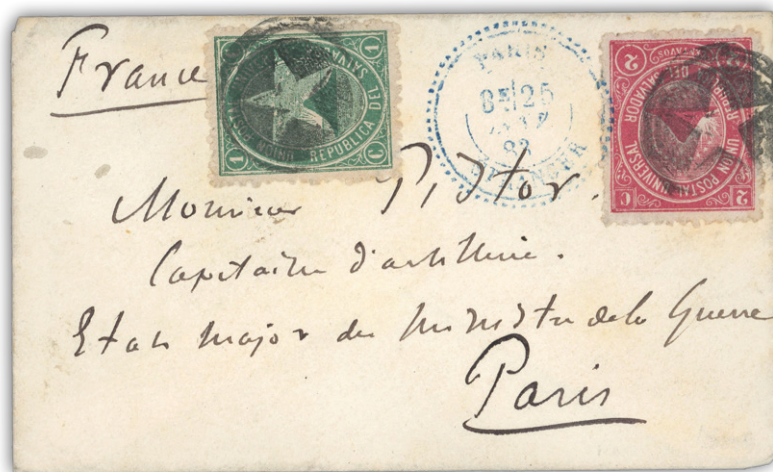 France
1 1
REPUBLICA DEL SALVADOR
UNION POSTAL
1 1
PARIS
25
ETRANGER
2 C
UNION POSTAL UNIVERSAL
REPUBLICA DEL SALVADOR
2 CENTAVOS
Monsieur Pistor.
Capitaine d'artillerie.
Etat Major du Ministre de la Guerre
Paris